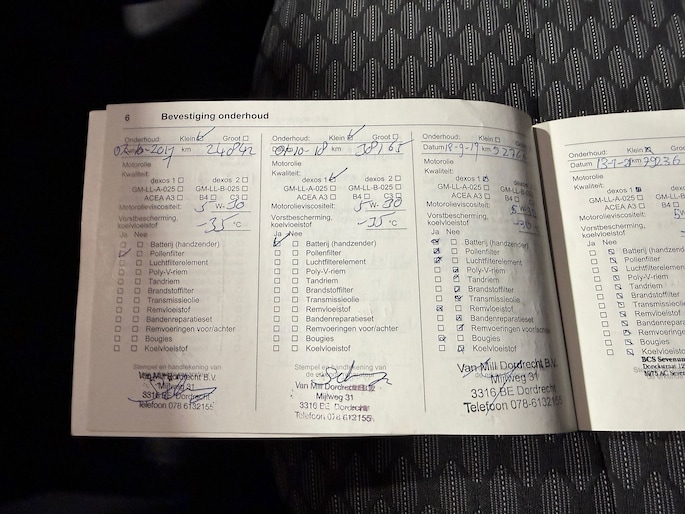 6 Bevestiging onderhoud
Onderhoud: Klein Groot
02-10-2017 km 24842
Motorolie
Kwaliteit:
dexos 1 dexos 2
GM-LL-A-025 GM-LL-B-025
ACEA A3 B4 C3
Motorolieviscositeit: 5 W- 30
Vorstbescherming,
koelvloeistof -35 °C
Ja Nee
Batterij (handzender)
Pollenfilter
Luchtfilterelement
Poly-V-riem
Tandriem
Brandstoffilter
Transmissieolie
Remvloeistof
Bandenreparatieset
Remvoeringen voor/achter
Bougies
Koelvloeistof
Stempel en handtekening van
Van Mill Dordrecht B.V.
Mijlweg 31
3316 BE Dordrecht
Telefoon 078-6132155
Onderhoud: Klein Groot
10-18 km 38165
Motorolie
Kwaliteit:
dexos 1 dexos 2
GM-LL-A-025 GM-LL-B-025
ACEA A3 B4 C3
Motorolieviscositeit: 5 W- 30
Vorstbescherming,
koelvloeistof -35 °C
Ja Nee
Batterij (handzender)
Pollenfilter
Luchtfilterelement
Poly-V-riem
Tandriem
Brandstoffilter
Transmissieolie
Remvloeistof
Bandenreparatieset
Remvoeringen voor/achter
Bougies
Koelvloeistof
Stempel en handtekening van
Van Mill Dordrecht
Mijlweg 31
3316 BE Dordrecht
Telefoon 078-6132155
Onderhoud: Klein Groot
Datum 18-9-19 km
Motorolie
Kwaliteit:
dexos 1 dexos 2
GM-LL-A-025 GM-LL-B-025
ACEA A3 B4 C3
Motorolieviscositeit:
Vorstbescherming,
koelvloeistof
Ja Nee
Batterij (handzender)
Pollenfilter
Luchtfilterelement
Poly-V-riem
Tandriem
Brandstoffilter
Transmissieolie
Remvloeistof
Bandenreparatieset
Remvoeringen voor/achter
Bougies
Koelvloeistof
Van Mill Dordrecht B.V.
Mijlweg 31
3316 BE Dordrecht
Telefoon 078-6132155
Onderhoud: Klein
Datum km 79236
Motorolie
Kwaliteit:
dexos 1
GM-LL-A-025
ACEA A3
Motorolieviscositeit:
Vorstbescherming,
koelvloeistof
Ja Nee
Batterij (handzender)
Pollenfilter
Luchtfilterelement
Poly-V-riem
Tandriem
Brandstoffilter
Transmissieolie
Remvloeistof
Bandenreparatie
Remvoeringen
Bougies
Koelvloeistof
BCS Sevenum